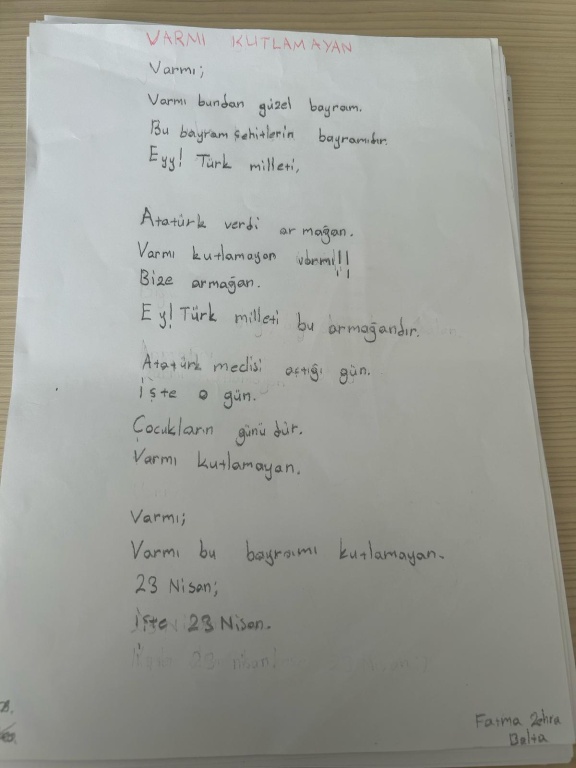 VARMI KUTLAMAYAN
Varmı;
Varmı bundan güzel bayram.
Bu bayram şehitlerin bayramıdır.
Eyy! Türk milleti,
Atatürk verdi armağan.
Varmı kutlamayan varmı!!
Bize armağan.
Ey! Türk milleti bu armağandır.
Atatürk meclisi açtığı gün.
İşte o gün.
Çocukların günü dür.
Varmı kutlamayan.
Varmı;
Varmı bu bayramı kutlamayan.
23 Nisan;
İşte 23 Nisan.
Fatma Zehra
Balta